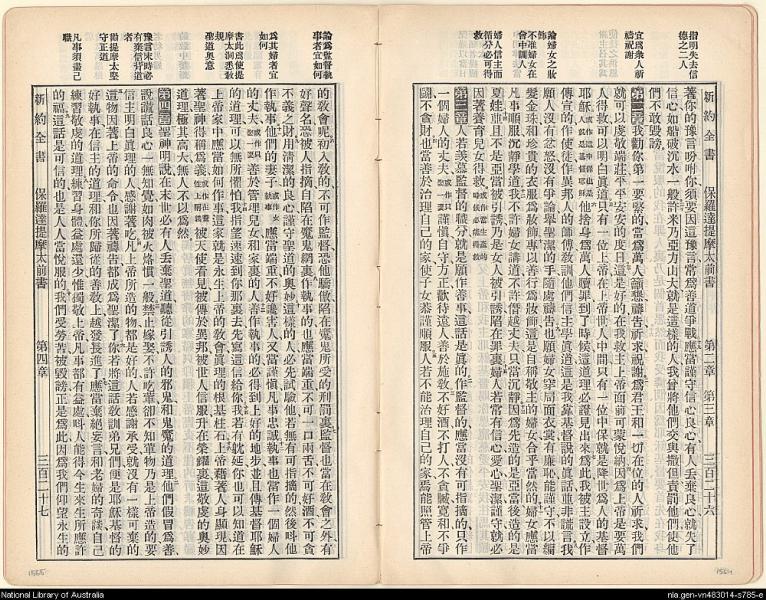 指明失去信
德之二人
宜為眾人祈
禱祝謝
論婦女之妝
飾
不准婦女在
會中訓人
婦人信主而
循分必可得
救
新約全書 保羅達提摩太前書 第二章 第三章 三百二十六
著你的豫言吩咐你須要因這豫言當為善道爭戰應當謹守信心良心有人丟棄良心就失了
信心如船破沉水一般許米乃亞力山大就是這樣的人我曾將他們交與撒但責罰他們使他
們不敢毀謗
第二章我勸你第一要緊的當為萬人籲懇禱告祈求祝謝為君王和一切在位的人祈求我們
就可以虔敬端莊平平安安的度日這是好的在我救主上帝面前可蒙悅納因為上帝是要萬
人得救可以明白真道只有一位上帝在上帝世人中間只有一位中保就是降世為人的基督
耶穌他捨身為萬人贖罪到了時候這道理必證見出來為此我被主設立作
傳宣的作使徒作異邦人的師傅教訓他們信主學真道這是我靠基督說的真話並非謊言我
願人沒有忿怒沒有爭論舉聖潔的手隨處禱告也願婦女穿局面衣裳有廉恥能謹守不以編
髮金珠和珍貴的衣服為妝飾專以善行為妝飾這是自稱敬主的婦女合乎當然的婦女應當
凡事順服沉靜學道我不許婦女講道不許僭越丈夫只當沉靜因為先造的是亞當後造的是
夏娃並且不是亞當被引誘乃是女人被引誘陷在罪裏婦人若常有信心愛心聖潔謹守就必
因著養育兒女得救
第三章人若羨慕監督的職分就是願作善事這話是真的作監督的應當沒有可指摘的只作
一個婦人的丈夫謹慎自守方正歡待遠人善於施教不好酒不打人不貪贓寬和不爭
鬭不貪財也當善於治理自己的家使子女恭謹順服人若不能治理自己的家焉能照管上帝
論為監督執
事者宜如何
為其婦者宜
如何
書此為使提
摩太洞悉教
規
聖道奧意
豫言末時必
有棄信背道
者
勸提摩太堅
守正道
凡事須盡己
職
的教會呢初入教的不可作監督恐他驕傲陷在魔鬼所受的刑罰裏監督也當在教會之外有
好聲名恐被人指摘自陷在魔鬼網裏作執事的也應當端重不可一口兩舌不可好酒不可貪
不義之財用清潔的良心謹守聖道的奧妙這樣的人必先試驗他若無有可指摘的然後呌他
作執事他們的妻子應當端重不好讒害人又當謹慎凡事忠誠執事也當作一個婦人
的丈夫善於管理兒女和家裏的人善作執事的必得到上好的地步並且傳基督耶穌
的道理可以無所懼怕我指望速速到你那裏去先寫這信給你我若有躭延你也可以知道在
上帝家中應當如何作事這家就是永生上帝的教會真理的根基柱石上帝藉著人身顯現因
著聖神得稱為義被天使看見被傳於異邦被世人信服升在榮耀裏這敬虔的奧妙
道理極其高大無人不以為然
第四章聖神明說在末世必有人丟棄聖道聽從引誘人的邪鬼和鬼魔的道理他們假冒為善
說謊話良心一無知覺如同被火烙慣一般禁止嫁娶不許吃葷卻不知葷物乃是上帝造的要
信主明白真理的人感謝著吃凡上帝所造的物都是好的人若感謝承受就沒有一樣可棄的
這物因著上帝的命令也因著禱告都成為聖潔了你若將這話教訓弟兄們便是耶穌基督的
好執事在信主的道理和你所歸從的善教上越發長進了應當棄絕妄言和老婦的奇談自己
練習敬虔的道理練習身體益處還少惟獨敬上帝凡事都有益處呌人能得今生來生所應許
的福這話是可信的也是人人當悅服的我們受勞苦被毀謗正是為此因為我們仰望永生的
新約全書 保羅達提摩太前書 第四章 三百二十七
1565
1564
National Library of Australia
nla.gen-vn483014-s785-e